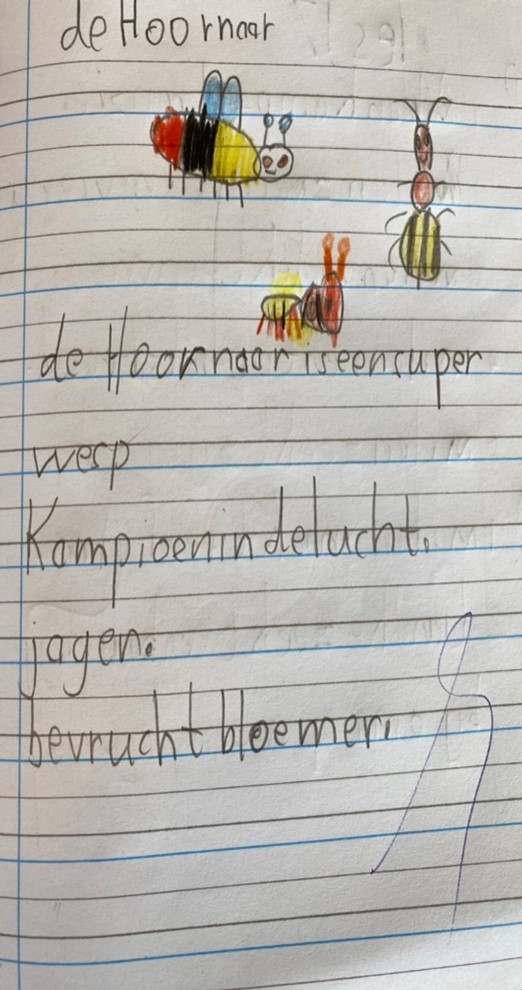 de Hoornaar
de Hoornaar is een super
wesp
Kampioen in de lucht.
jagen.
bevrucht bloemen.